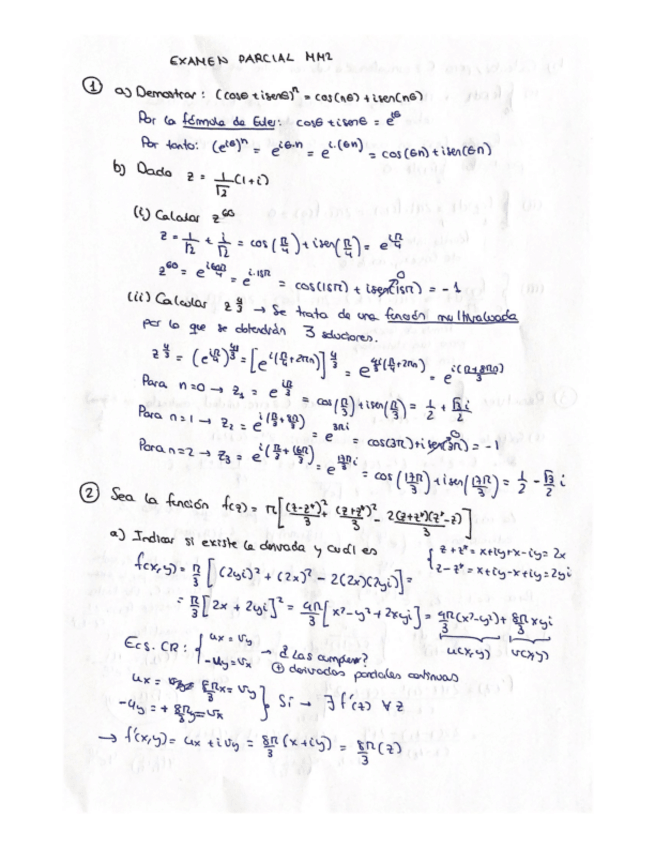 EXAMEN PARCIAL MM2
① a) Demostrar: (cosθ + isenθ)^n = cos(nθ) + isen(nθ)
Por la fórmula de Euler: cosθ + isenθ = e^{iθ}
Por tanto: (e^{iθ})^n = e^{iθ·n} = e^{i·(θn)} = cos(θn) + isen(θn)
b) Dado z = 1/√2 (1+i)
(i) Calcular z^{60}
z = 1/√2 + i/√2 = cos(π/4) + isen(π/4) = e^{iπ/4}
z^{60} = e^{i60π/4} = e^{i·15π} = cos(15π) + isen(15π) = -1
0
(ii) Calcular z^{4/3} → Se trata de una función multivaluada
por lo que se obtendrán 3 soluciones.
z^{4/3} = (e^{iπ/4})^{4/3} = [e^{i(π/4+2πn)}]^{4/3} = e^{4/3 i(π/4+2πn)} = e^{i(π+8πn)/3}
Para n=0 → z₁ = e^{iπ/3} = cos(π/3) + isen(π/3) = 1/2 + √3/2 i
Para n=1 → z₂ = e^{i(π/3+8π/3)} = e^{3πi} = cos(3π) + isen(3π) = -1
0
Para n=2 → z₃ = e^{i(π/3+16π/3)} = e^{17π/3 i} = cos(17π/3) + isen(17π/3) = 1/2 - √3/2 i
② Sea la función f(z) = π[(z-z*)²/3 + (z+z*)²/3 - 2(z+z*)(z*-z)/3]
a) Indicar si existe la derivada y cuál es
{ z+z* = x+iy+x-iy = 2x
z-z* = x+iy-x+iy = 2yi
f(x,y) = π/3 [(2yi)² + (2x)² - 2(2x)(2yi)] =
= π/3 [2x + 2yi]² = 4π/3 [x²-y²+2xyi] = 4π/3 (x²-y²) + 8π/3 xyi
u(x,y) v(x,y)
Ecs. CR: { ux = vy
-uy = vx → ¿Las cumplen?
⊕ derivadas parciales continuas
ux = 8π/3 x = vy
-uy = + 8π/3 y = vx } Sí → ∃ f'(z) ∀ z
→ f'(x,y) = ux + i vy = 8π/3 (x+iy) = 8π/3 (z)